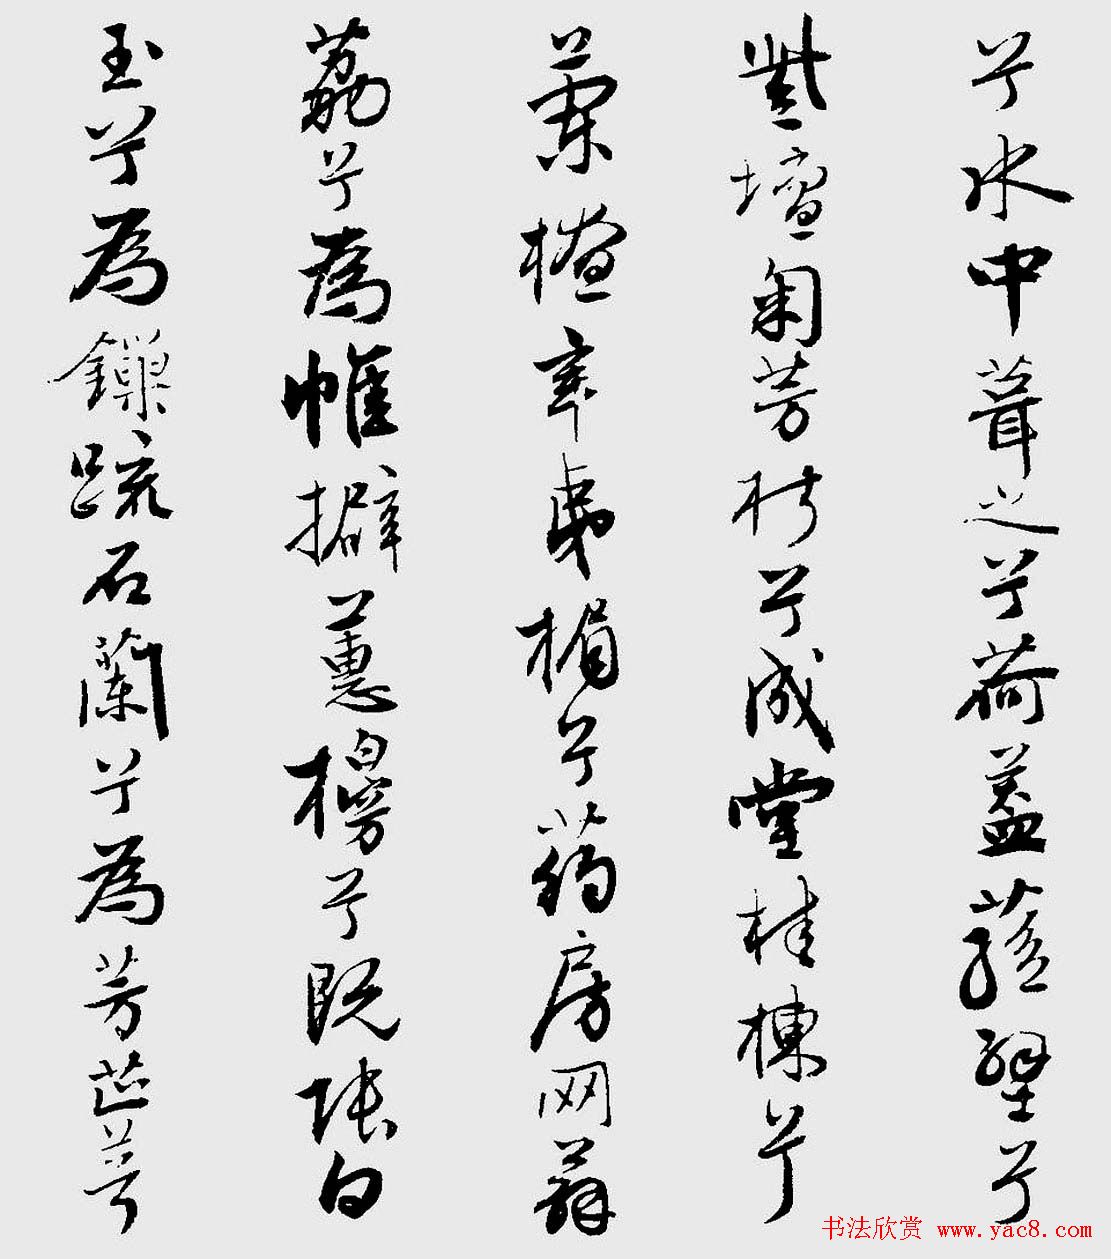 兮水中葺之兮荷蓋蓀壁兮
紫壇匊芳椒兮成堂桂棟兮
蘭橑辛夷楣兮葯房网薜
荔兮為帷擗蕙櫋兮既張白
玉兮為疏石蘭兮為芳芷葺
书法欣赏 www.yac8.com